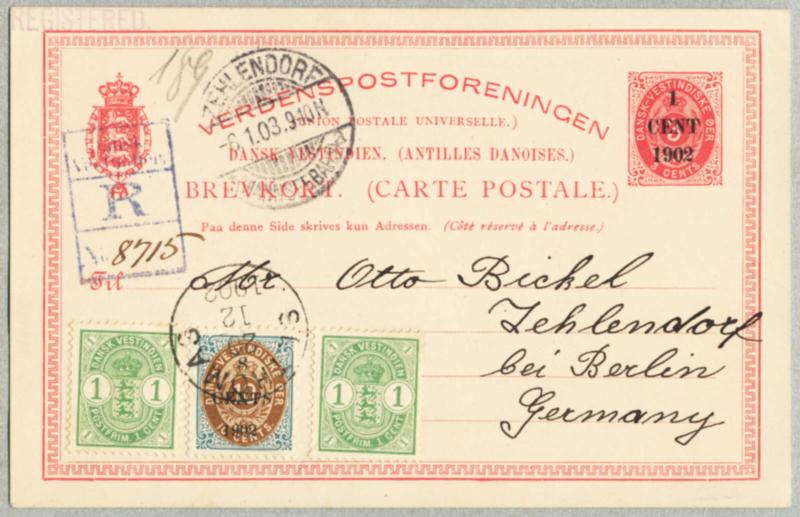 REGISTERED.
189
ZEHLENDORF
-6.1.03.9-10N
VERDENSPOSTFORENINGEN
(UNION POSTALE UNIVERSELLE.)
DANSK VESTINDIEN. (ANTILLES DANOISES.)
BREVKORT. (CARTE POSTALE.)
Paa denne Side skrives kun Adressen. (Côté réservé à l'adresse.)
DANSK-VESTINDISKE ØER
3 CENTS
1
CENT
1902
R
No. 8715
Til Mr Otto Bickel
Zehlendorf
bei Berlin
Germany
ST. THOMAS
12
1902
DANSK VESTINDIEN
1 1
POSTFRIM. 1 CENT
VESTINDISKE ØER
10 CENTS.
CENTS
1902
DANSK VESTINDIEN
1 1
POSTFRIM. 1 CENT